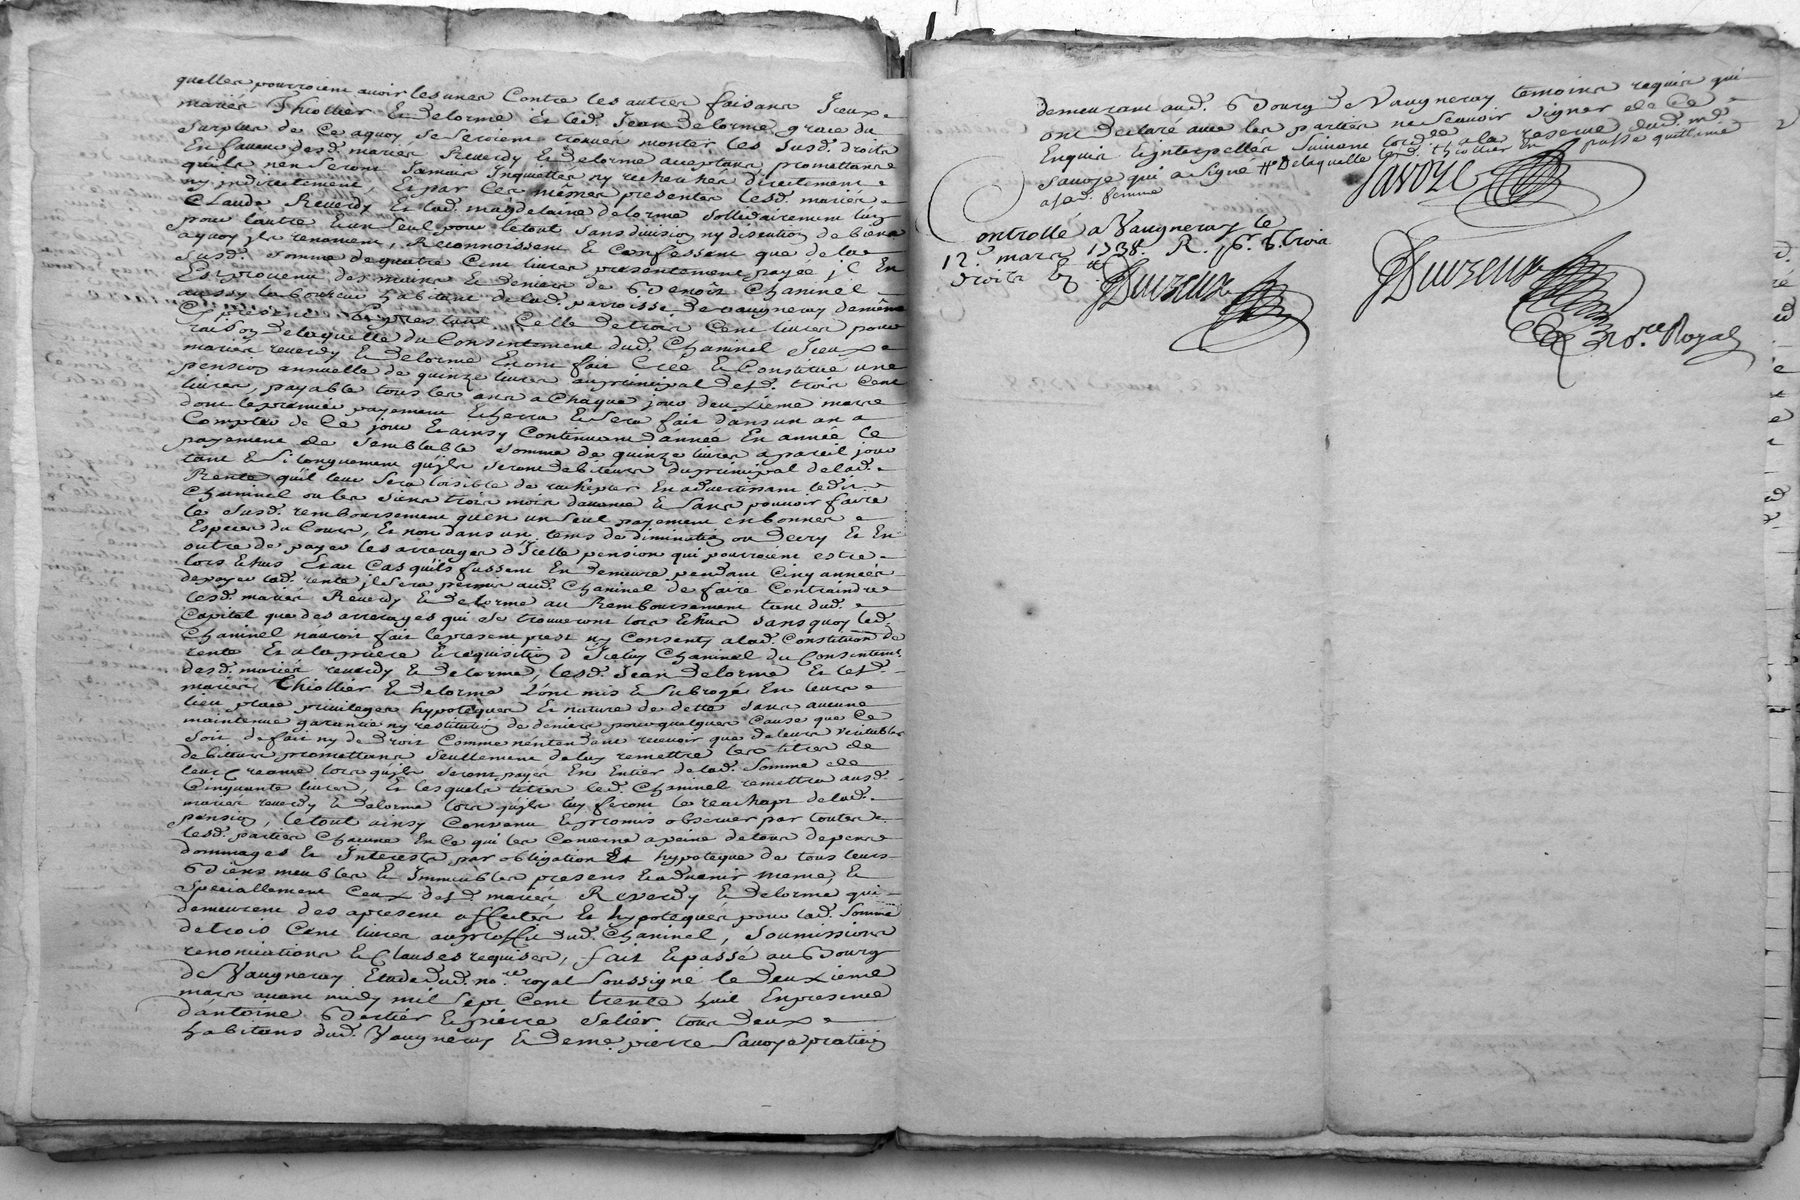 quelles pourroient avoir les unes Contre les autres faisans Iceux
mariés Thiollier Et delorme Et led. Jean delorme grace du
surplus de Ce aquoy se seroient trouvés monter les susd. droits
En faveur desd. mariés Reverdy Et delorme acceptans promettans
quils nen seront Jamais Inquiettés ny recherchés directement
ny indirectement, Et par Ces mêmes presentes lesd. mariés
Claude Reverdy Et lad. magdelaine delorme sollidairement lun
pour lautre Et un seul pour letout sans division ny discution de biens
aquoy ils renoncent, Reconnoissent Et Confessent que de lad.
susd. somme de quatre Cent livres presentement payée il En
Est provenu des mains Et deniers de Benoît Chaninel
aussy laboureur habitant de lad. parroisse de vaugneray demême
Cy present Et prestant Celle de trois Cent livres pour
raison de laquelle du Consentement dud. Chaninel Iceux
mariés reverdy Et delorme En ont fait Creé Et Constitué une
pension annuelle de quinze livres au principal desd. trois Cent
livres, payable tous les ans a Chaque jour deuxieme mars
dont le premier payement Echerra Et se sera fait dans un an a
Compter de Ce jour Et ainsy Continuant dannée En année Ce
payement de semblable somme de quinze livres a pareil jour
tant Et si longuement quils seront debiteurs du principal de lad.
Rente quil leur sera loisible de rachepter En advertissant ledit
Chaninel ou les siens trois mois davance Et sans pouvoir faire
le susd. remboursement quen un seul payement en bonnes
Especes du Cours, Et non dans un tems de diminution ou decry Et En
outre de payer les arrerages d'Icelle pension qui pourroient estre
lors Echus Et au Cas quils fussent En demeure pendant Cinq années
de payer lad. rente il sera permis aud. Chaninel de faire Contraindre
lesd. mariés Reverdy Et delorme au Remboursement tant dud.
Capital que des arrerages qui se trouveront lors Echus sans quoy led.
Chaninel nauroit fait le present prest ny Consenty a lad. Constitution de
rente Et a la priere Et requisition d Iceluy Chaninel du Consentem.t
desd. mariés reverdy Et delorme, lesd. Jean delorme Et lesd.
mariés Thiollier Et delorme L'ont mis Et subrogé En leurs
lieu place privileges hypoteques Et nature de dette sans aucune
maintenue garantie ny restitution de deniers pour quelques Cause que Ce
soit de fait ny de Droit Comme nentendant recevoir que de leurs veritables
debiteurs promettans seullement de luy remettre les titres de
leur Creance lors quils seront payés En Entier de lad. somme de
Cinquante livres, Et lesquels titres led. Chaninel remettra ausd.
mariés reverdy Et delorme lors quils luy feront le reachapt de lad.
pension, letout ainsy Convenu Et promis observer par toutes
lesd. parties Chacune En Ce qui les Concerne a peine de tous depens
dommages Et Interests par obligation Et hypoteque de tous leurs
Biens meubles Et Immeubles presens Et advenir meme Et
speciallement Ceux desd. mariés Reverdy Et delorme qui
demeurent des apresent affectés Et hypotequés pour lad. somme
de trois Cent livres au proffit dud. Chaninel, soumissions
renonciations Et Clauses requises, fait Et passé au Bourg
de Vaugneray Etude dud. no.re royal soussigné le deuxieme
mars avant midy mil sept Cent trente huit En presence
d'antoine Bertier Et pierre Salier tous deux
habitans dud. Vaugneray Et de me. pierre Savoye praticien
demeurant aud. Bourg de Vaugneray temoins requis qui
ont declaré avec les parties ne scavoir signer de Ce
Enquis Et interpellés suivant lord.ce a la reserve dud. m.e
Savoye qui a signé # De laquelle led. Thiollier En passe quittance
a sad. femme
Savoye
Controllé a Vaugneray le
12. mars 1738. R.
droits